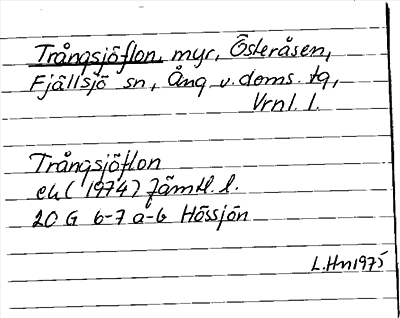 Trångsjöflon, myr, Österåsen,
Fjällsjö sn, Ång v. doms. tg,
Vrnl. l.
Trångsjöflon
ek ( 1974) Jämtl. l.
20 G 6-7 a-b Hössjön
L.Hn1975